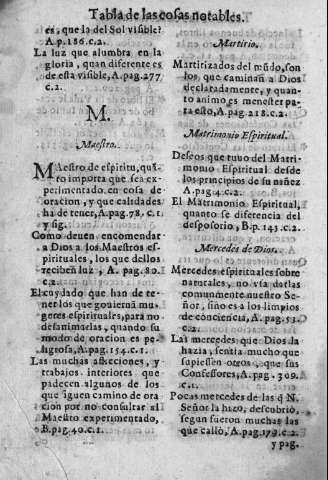 Tabla de las cosas notables.
es, que la del Sol visible?
A.p.186.c.2.
La luz que alumbra en la
gloria, quan diferente es
de esta visible, A.pag.277
c.2.
M.
Maestro.
MAestro de espiritu, quã-
to importa que sea ex-
perimentado en cosa de
oracion, y que calidades
ha de tener, A.pag.78. c.1
y sig.
Como deuen encomendar
a Dios a los Maestros es-
pirituales, los que dellos
reciben luz, A. pag. 80.
c.2.
El cuydado que han de te-
ner los que gouierna mu-
geres espirituales, para no
desanimarlas, quando su
modo de oracion es pe-
ligroso, A.pag.154.c.1.
Las muchas aflicciones, y
trabajos interiores que
padecen algunos de los
que siguen camino de ora
cion por no consultar al
Maestro experimentado,
B.pag.40.c.1.
Martirio.
Martirizados del mũdo, son
los que caminan a Dios
declaradamente, y quan-
to animo es menester pa-
ra esto, A.pag.218.c.2.
Matrimonio Espiritual.
Deseos que tuuo del Matri-
monio Espiritual desde
los principios de su niñez
A.pag.4.c.2.
El Matrimonio Espiritual,
quanto se diferencia del
desposorio, B.p.145.c.2.
Mercedes de Dios.
Mercedes espirituales sobre
naturales, no via darlas
comunmente nuestro Se-
ñor, sino es a los limpios
de conciencia, A.pag.53.
c.2.
Las mercedes que Dios la
hazia, sentia mucho que
supiessen otros, que sus
Confessores, A.pag.309.
c.1.
Pocas mercedes de las q̃ N.
Señor la hizo, descubriò,
segun fueron muchas las
que callò, A.pag.179.c.2.
y pag.